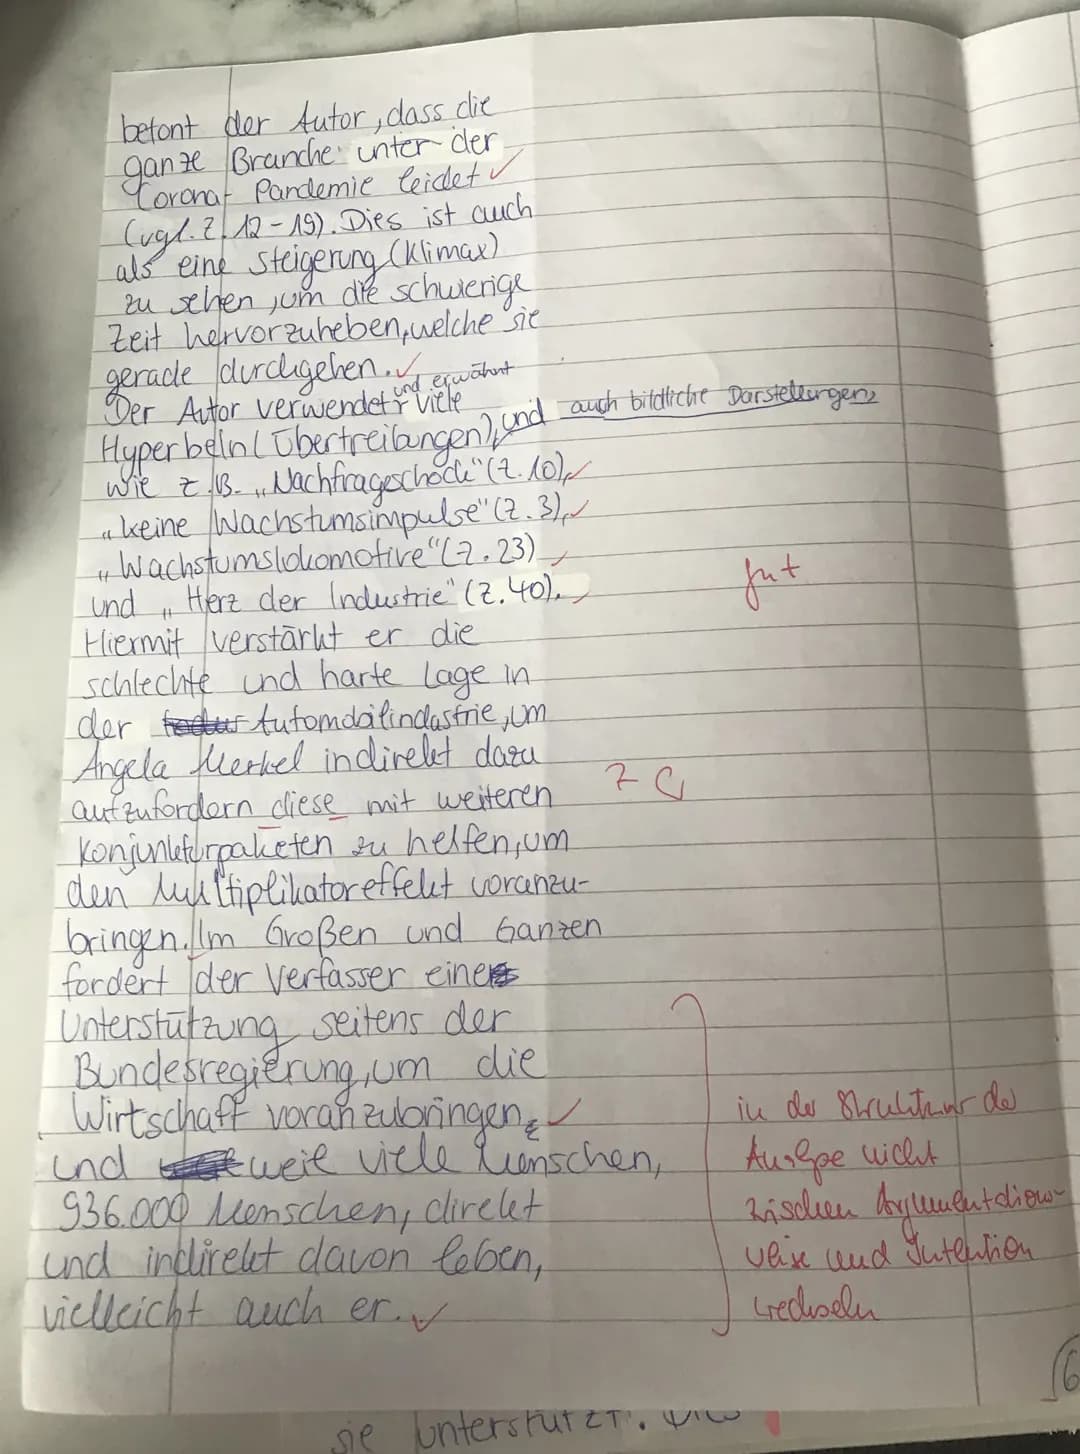 betont der Autor, dass die
ganze Branche unter der
Corona Pandemie leidet ✓
(vgl. Z. 12-19). Dies ist auch
als eine Steigerung (Klimax)
zu sehen, um die schwierige
Zeit hervorzuheben, welche sie
gerade durchgehen. ✓
und erwähnt
Der Autor verwendet viele
Hyperbeln (Übertreibungen), und auch bildliche Darstellungen,
wie z.B. „Nachfrageschock" (Z. 10), ✓
„keine Wachstumsimpulse" (Z. 3), ✓
„Wachstumslokomotive" (Z. 23)
und „Herz der Industrie" (Z. 40).
gut
Hiermit verstärkt er die
schlechte und harte Lage in
der Automobilindustrie, um
Angela Merkel indirekt dazu
aufzufordern diese mit weiteren
Konjunkturpaketen zu helfen, um
den Multiplikatoreffekt voranzu-
bringen. Im Großen und Ganzen
fordert der Verfasser eine
Unterstützung seitens der
Bundesregierung, um die
Wirtschaft voranzubringen ✓
und weil viele Menschen,
936.000 Menschen, direkt
und indirekt davon leben,
vielleicht auch er. ✓
in der Struktur der
nicht
zwischen Argumentations-
weise und Intention
wechseln
6
sie unterstützt.